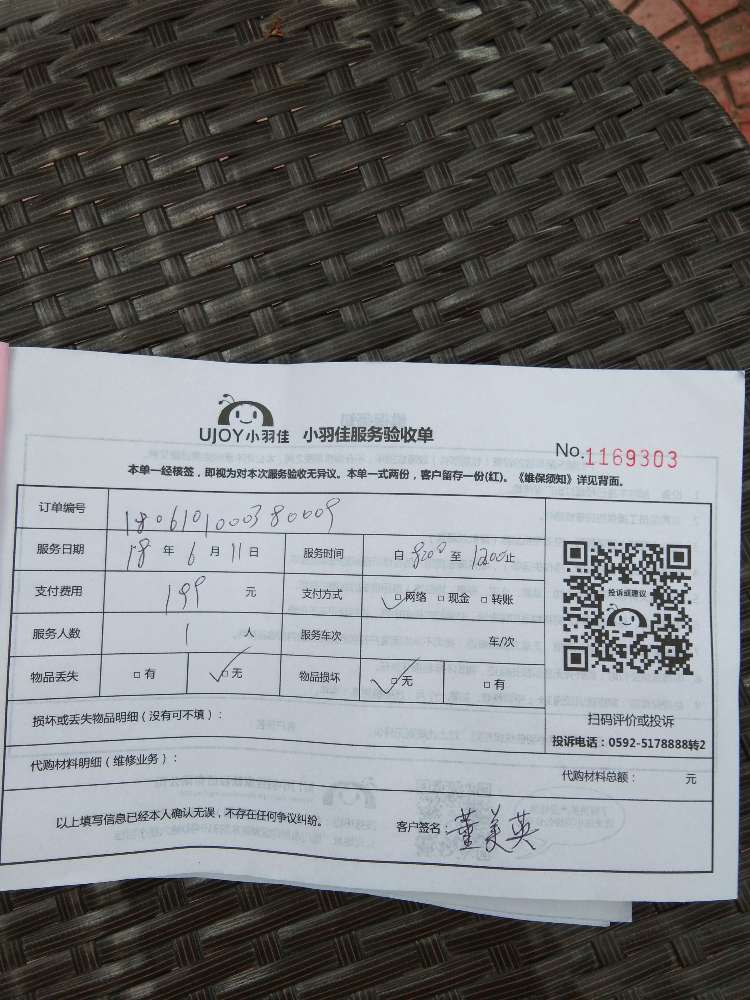 UJOY小羽佳 小羽佳服务验收单
No.1169303
本单一经核签，即视为对本次服务验收无异议。本单一式两份，客户留存一份(红)。《维保须知》详见背面。
订单编号 1806101000380009
服务日期 18 年 6 月 11 日 服务时间 自 8:00 至 12:00 止
支付费用 199 元 支付方式 ✓□网络 □现金 □转账
服务人数 1 人 服务车次 车/次
物品丢失 □有 ✓□无 物品损坏 ✓□无 □有
投诉或建议
扫码评价或投诉
投诉电话：0592-5178888转2
损坏或丢失物品明细（没有可不填）：
代购材料明细（维修业务）： 代购材料总额： 元
以上填写信息已经本人确认无误，不存在任何争议纠纷。 客户签名：董美英